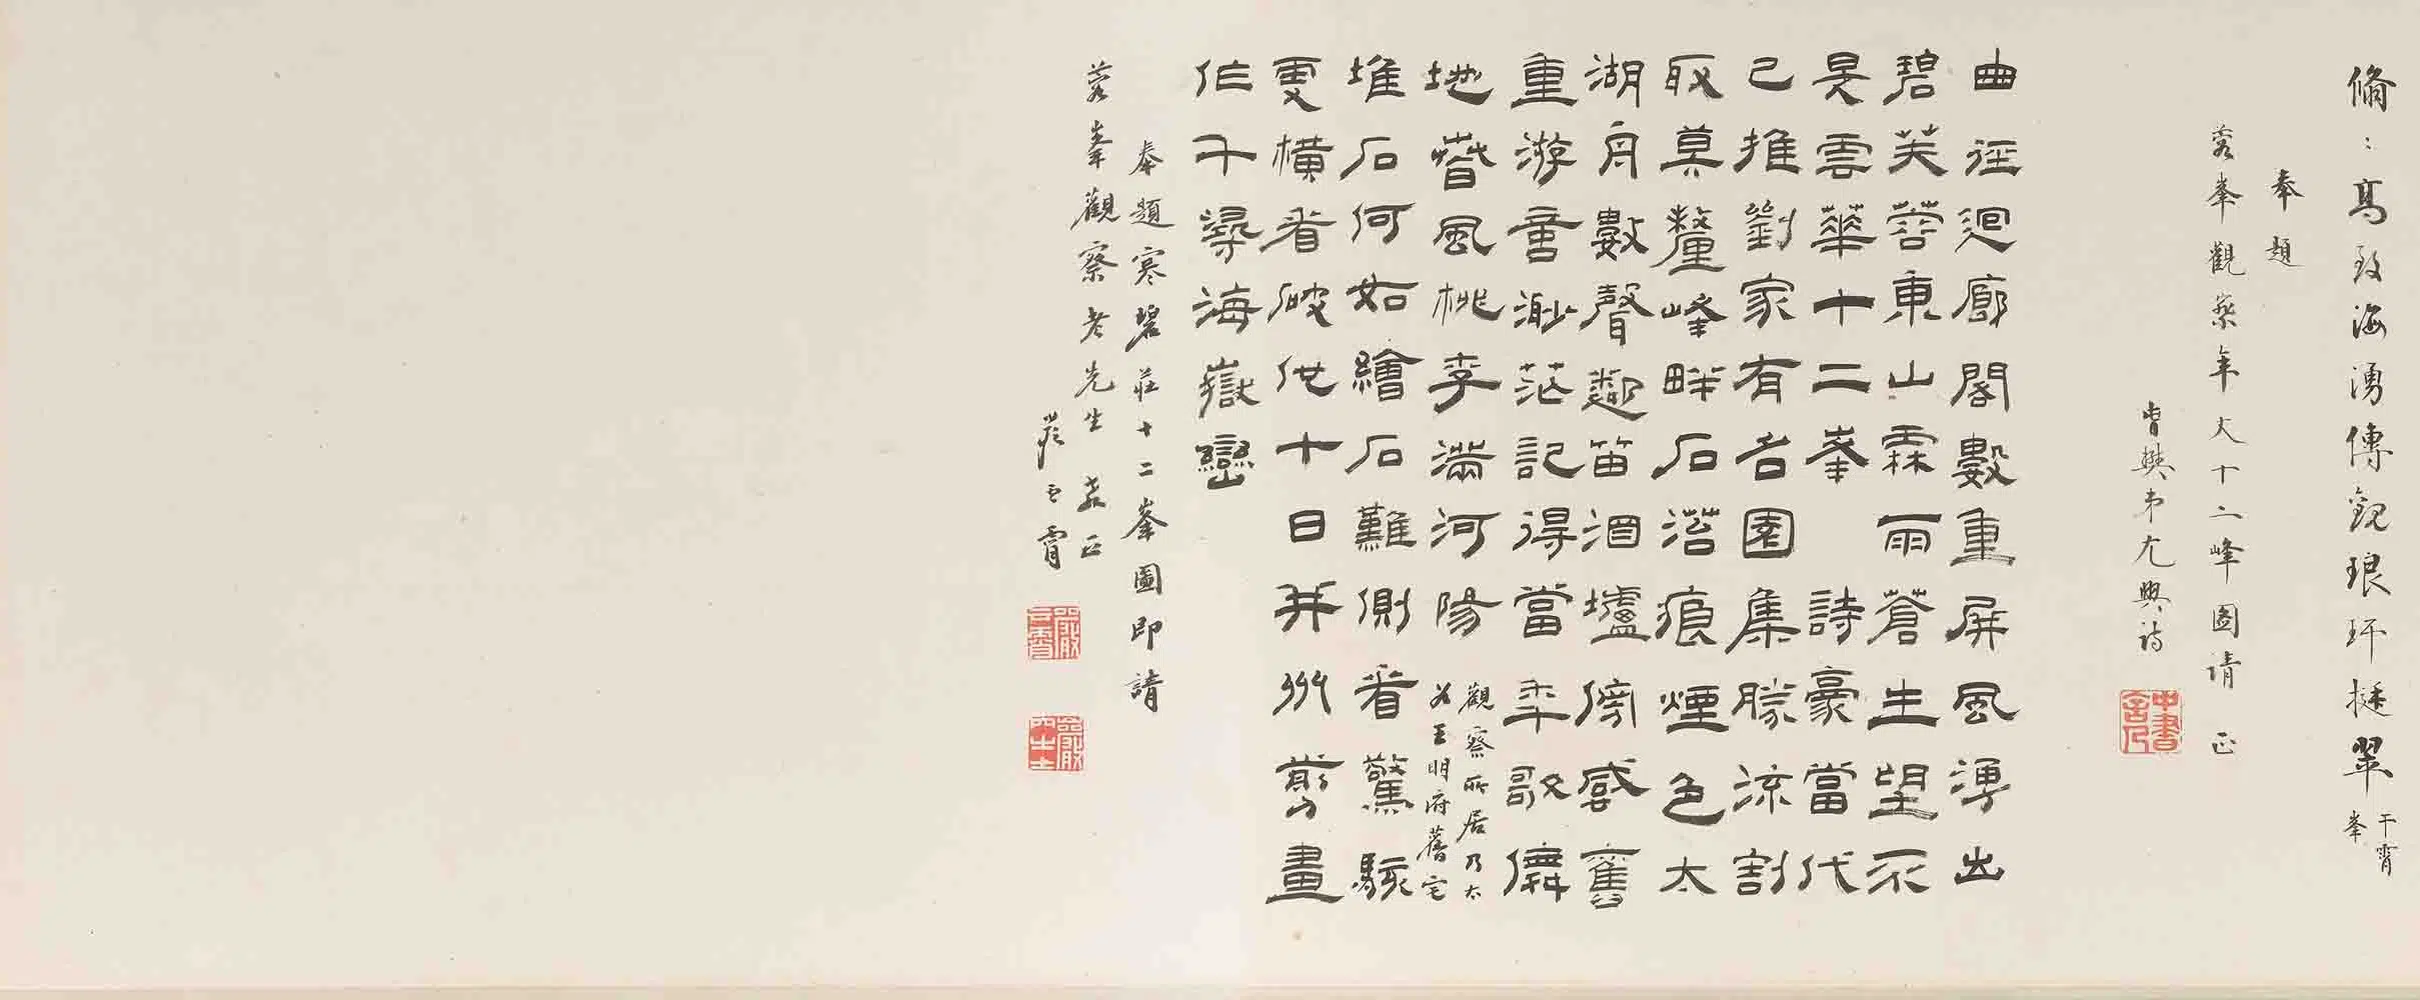 翛：高致海湧傳觀琅玕挺翠干霄峯
奉題
蓉峯觀察年丈十二峰圖請 正
曹楙弟尤興詩
中書舍人
曲徑迴廊閣數重屏風湧出
碧芙蓉東山霖雨蒼生望不
是雲華十二峯 詩豪當代
已推劉家有名園集勝流割
取莫釐峰畔石苔痕煙色太
湖舟數聲邀笛酒壚傍感舊
重游意渺茫記得當年歌儛
地 簪風桃李滿河陽 觀察所居乃太
翁王明府舊宅
堆石何如繪石難側看驚駭
更橫看破他十日并州剪畫
作千尋海嶽巒
奉題寒碧莊十二峯圖即請
蓉峯觀察老先生 教正
嚴士霄